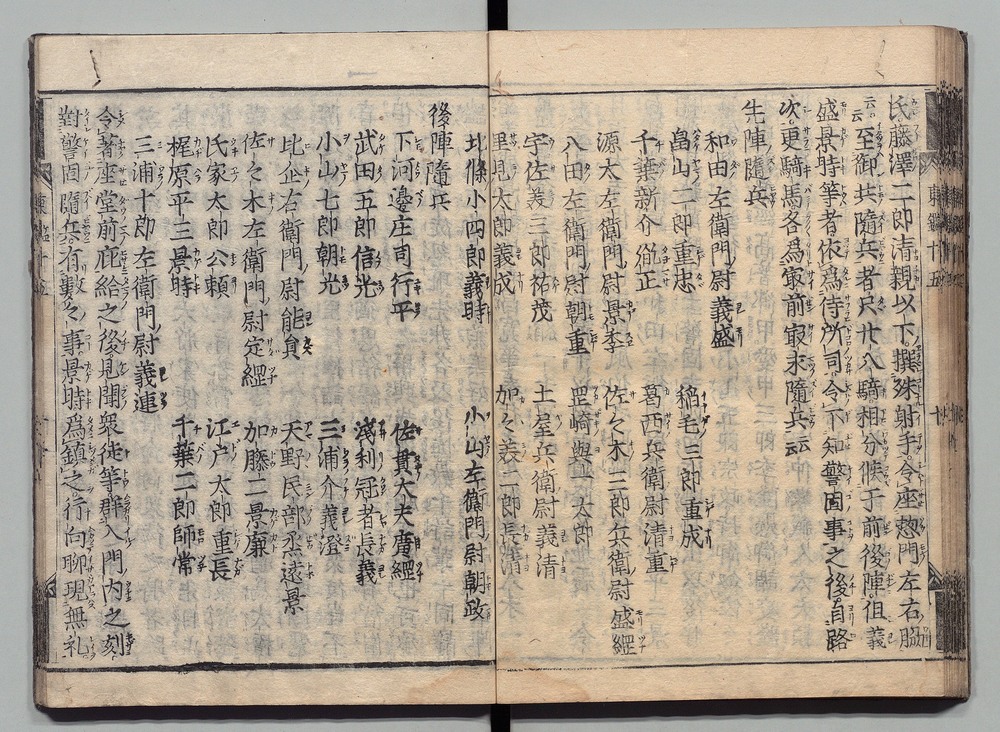 氏藤澤二郎清親以下撰殊射手令座惣門左右脇
云云至御共隨兵者只廿八騎相分候于前後陣但義
盛景時等者依爲侍所司令下知警固事之後自路
次更騎馬各爲冣前冣末隨兵云云
先陣隨兵
和田左衛門尉義盛
畠山二郎重忠 稻毛三郎重成
千葉新介胤正 葛西兵衛尉清重
源太左衛門尉景季 佐々木三郎兵衛尉盛經
八田左衛門尉朝重 罡崎與一太郎
宇佐美三郎祐茂 土屋兵衛尉義清
里見太郎義成 加々美二郎長清
北條小四郎義時 小山左衛門尉朝政
後陣隨兵
下河邊庄司行平 佐貫大夫廣經
武田五郎信光 淺利冠者長義
小山七郎朝光 三浦介義澄
比企右衛門尉能員 天野民部丞遠景
佐々木左衛門尉定經 加藤二景廉
氏家太郎公頼 江戸太郎重長
梶原平三景時 千葉二郎師常
三浦十郎左衛門尉義連
令著座堂前庇給之後見聞衆徒等群入門内之刻
對警固隨兵有數々事景時爲鎮之行向聊現無礼
東鑑十五